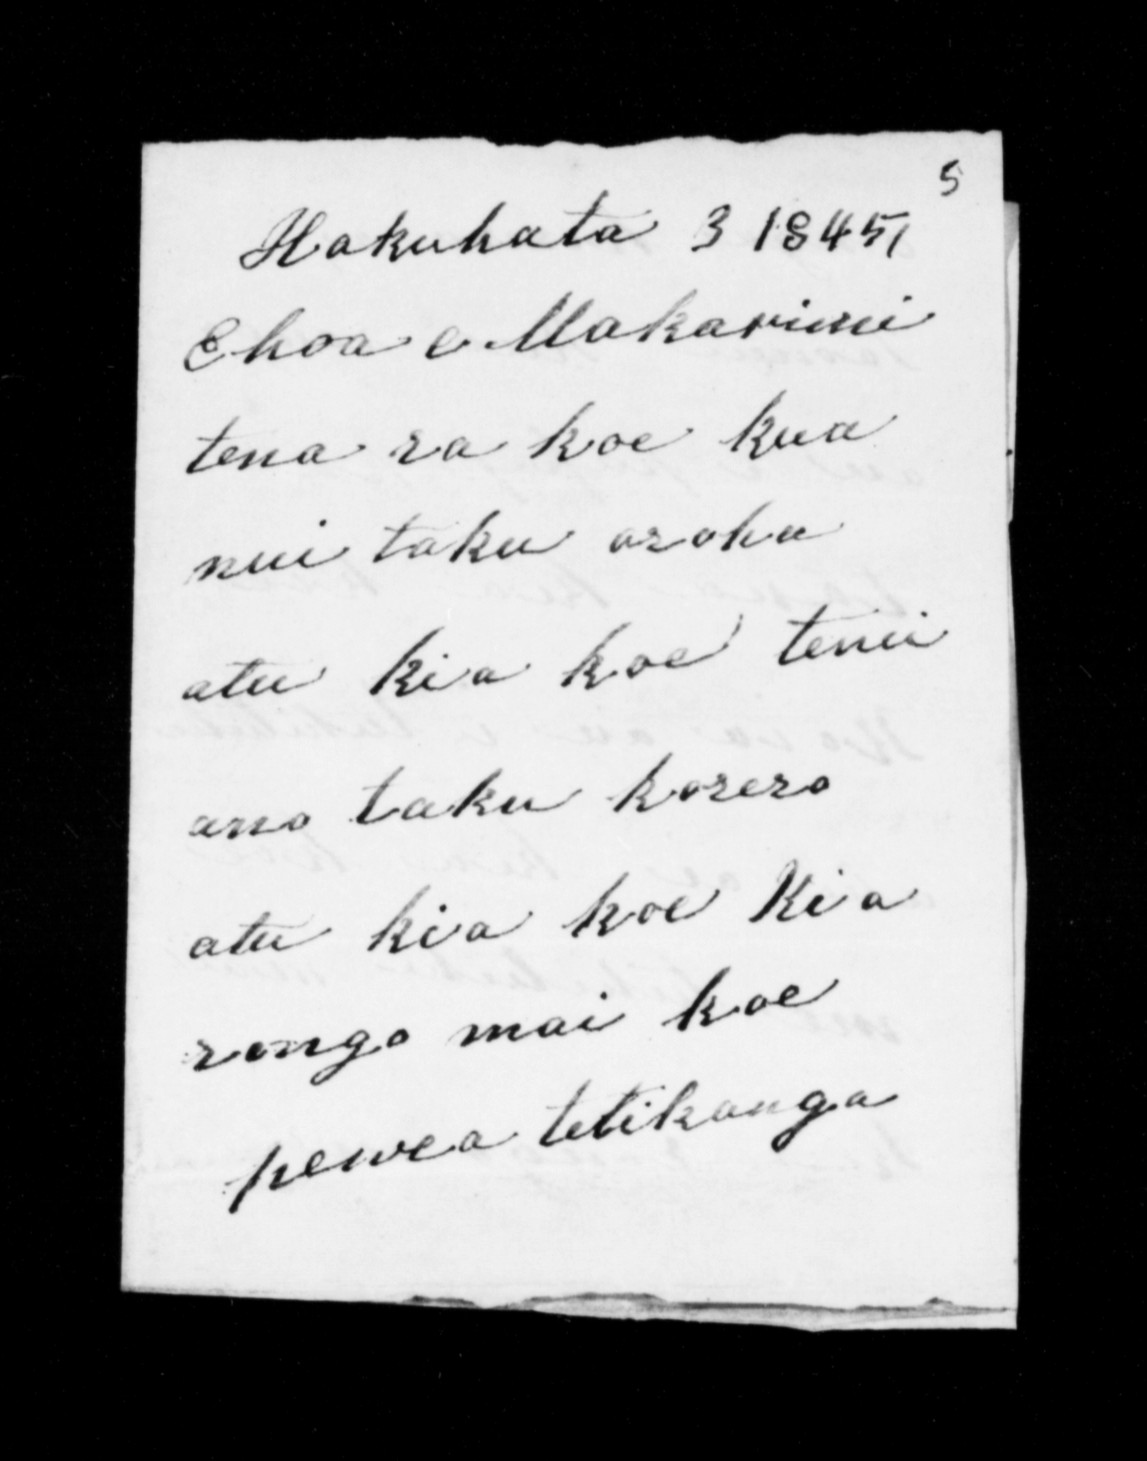 5
Hakuhata 3 1845
E hoa e Makarini
tena ra koe kua
nui taku aroha
atu kia koe tenei
ano taku korero
atu kia koe Kia
rongo mai koe
pewea tetikanga